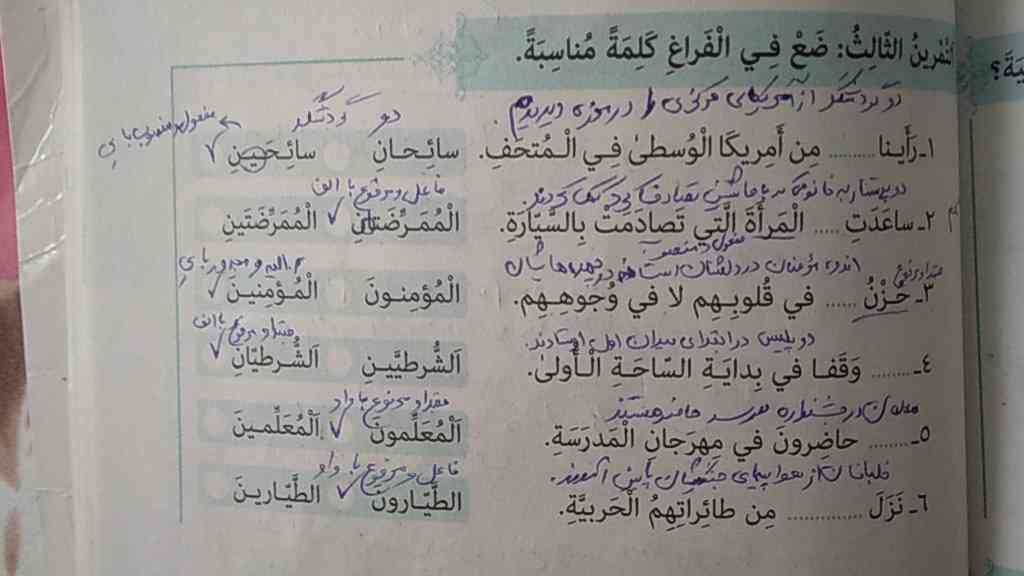 اَلتَّمْرینُ الثّالِثُ: ضَعْ فِي الْفَراغِ کَلِمَةً مُناسِبَةً.
دو گردشگر از آمریکای مرکزی را در موزه دیدیم.
دو گردشگر
مفعول و منصوب با ی
١ـ رَأَینا ......... مِن أَمِریکَا الْوُسطیٰ فِي الْمُتحَفِ. سائِحانِ سائِحَیـنِ ✓
دو پرستار به خانومی که با ماشین تصادف کرد کمک کردند.
فاعل و مرفوع با الف
٢ـ ساعَدَتِ ..... الْمَرأَةَ الَّتِي تَصادَمَتْ بِالسَّیّارَةِ. الْمُمَرِّضَتانِ ✓ الْمُمَرِّضَتَینِ
اندوه مؤمنان در دلشان است نه در چهره‌هایشان
م.الیه و مجرور با ی
٣ـ حُزْنُ ...... في قُلوبِهِم لا في وُجوهِهِم. الْمُؤمِنونَ الْمُؤمِنینَ ✓
دو پلیس در ابتدای میدان اول ایستادند.
مبتدا و مرفوع با الف
٤ـ ........ وَقَفا في بِدایَةِ السّاحَةِ الْأُولیٰ. اَلشُّرطیَّینِ اَلشُّرطیّانِ ✓
معلمان در جشنواره مدرسه حاضر هستند
مبتدا و مرفوع با واو
٥ـ ........ حاضِرونَ في مِهرَجانِ الْمَدرَسَةِ. اَلْمُعَلِّمونَ ✓ اَلْمُعَلِّمینَ
خلبانان از هواپیمای جنگیشان پایین آمدند.
فاعل و مرفوع با واو
٦ـ نَزَلَ ............. مِن طائِراتِهِمُ الْحَربیَّةِ. الطَّیّارونَ ✓ الطَّیّارینَ